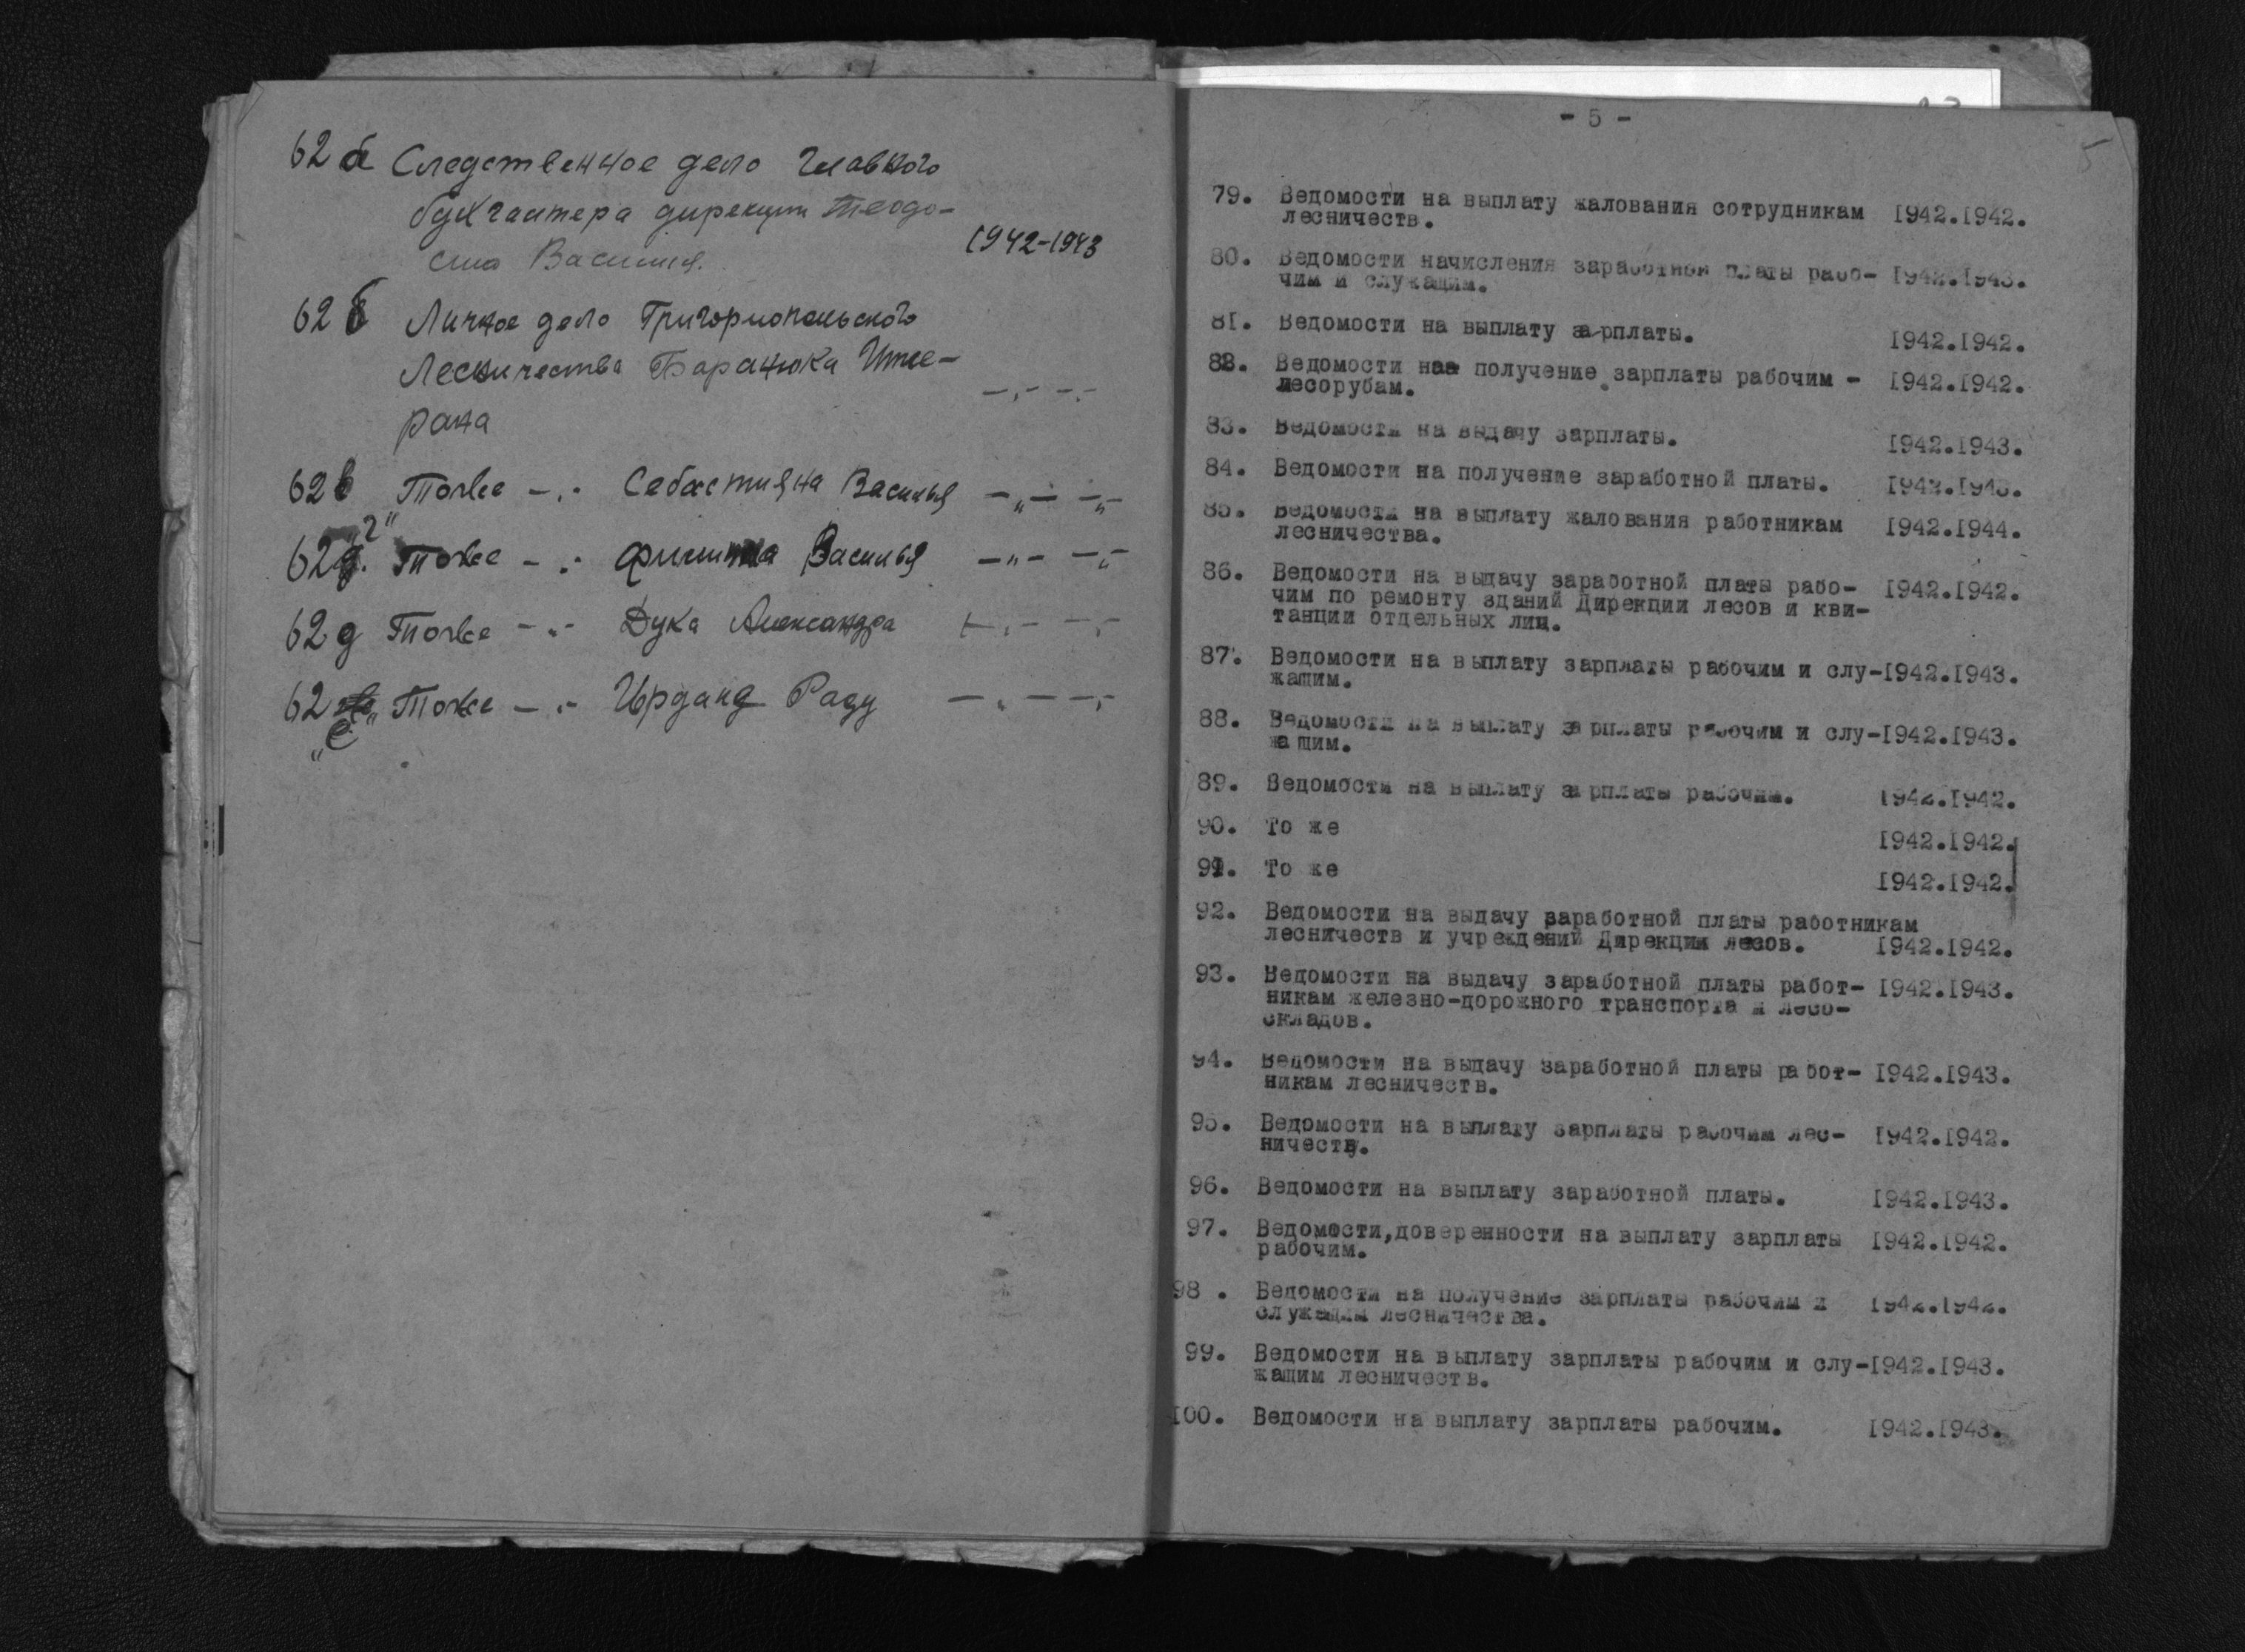 62 а Следственное дело Главного
бухгалтера дирекции Теодо-
сио Василия. 1942-1943
62 б Личное дело Григориопольского
Лесничества Баранюка Ште-
рана -„- -„-
62 в Тоже -„- Себастияна Василия -„- -„-
62 "г" Тоже -„- Василия -„- -„-
62 д Тоже -„- Дука Александра -„- -„-
62 "е" Тоже -„- Раду -„- -„-
- 5 -
5
79. Ведомости на выплату жалования сотрудникам 1942.1942.
лесничеств.
80. Ведомости начисления заработной платы рабо- 1942.1943.
чим и служащим.
81. Ведомости на выплату зарплаты. 1942.1942.
82. Ведомости на получение зарплаты рабочим - 1942.1942.
лесорубам.
83. Ведомости на выдачу зарплаты. 1942.1943.
84. Ведомости на получение заработной платы. 1942.1943.
85. Ведомости на выплату жалования работникам 1942.1944.
лесничества.
86. Ведомости на выдачу заработной платы рабо- 1942.1942.
чим по ремонту зданий Дирекции лесов и кви-
танции отдельных лиц.
87. Ведомости на выплату зарплаты рабочим и слу-1942.1943.
жащим.
88. Ведомости на выплату зарплаты рабочим и слу-1942.1943.
жащим.
89. Ведомости на выплату зарплаты рабочим. 1942.1942.
90. То же 1942.1942.
91. То же 1942.1942.
92. Ведомости на выдачу заработной платы работникам
лесничеств и учреждений Дирекции лесов. 1942.1942.
93. Ведомости на выдачу заработной платы работ- 1942.1943.
никам железно-дорожного транспорта и лесо-
складов.
94. Ведомости на выдачу заработной платы работ- 1942.1943.
никам лесничеств.
95. Ведомости на выплату зарплаты рабочим лес- 1942.1942.
ничеств.
96. Ведомости на выплату заработной платы. 1942.1943.
97. Ведомости,доверенности на выплату зарплаты 1942.1942.
рабочим.
98 . Ведомости на получение зарплаты рабочим и 1942.1942.
служащим лесничества.
99. Ведомости на выплату зарплаты рабочим и слу-1942.1943.
жащим лесничеств.
100. Ведомости на выплату зарплаты рабочим. 1942.1943.